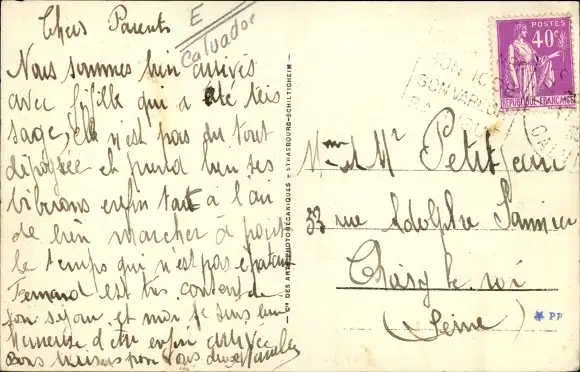 Chers Parents
E
Calvados
Nous sommes bien arrivés
avec fifille qui a été très
sage, elle n'est pas du tout
dépaysée et prend bien ses
biberons enfin tout à l'air
de bien marcher à part
le temps qui n'est pas épatant
Fernand est très content de
son séjour et moi je suis bien
heureuse d'être enfin arrivée
Bons baisers pour vous deux
Cie DES ARTS PHOTOMÉCANIQUES - STRASBOURG-SCHILTIGHEIM
POSTES
40c
RÉPUBLIQUE FRANÇAISE
SON
SON
CALV
Mme et Mr Petitjean
33 rue Adolphe
Choisy le roi
(Seine)
PP